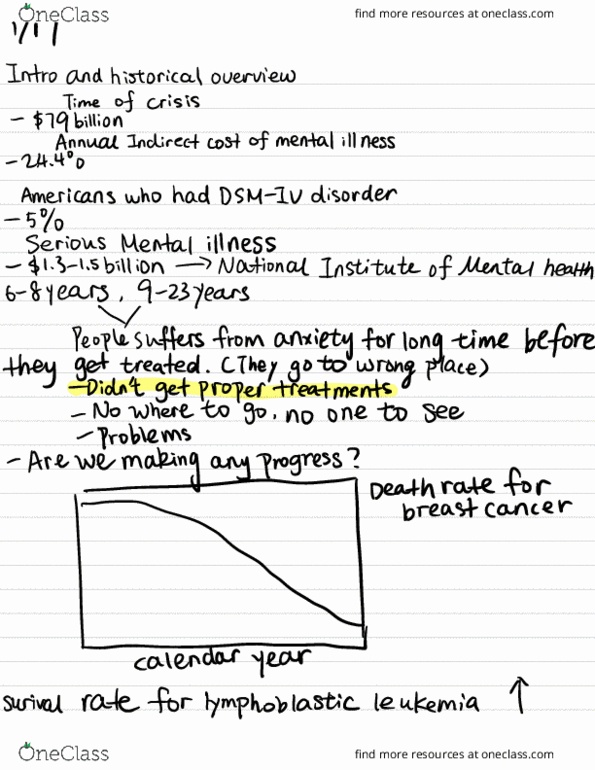 OneClass
find more resources at oneclass.com
1/17
Intro and historical overview
Time of crisis
- $79 billion
Annual Indirect cost of mental illness
- 24.4%
Americans who had DSM-IV disorder
- 5%
Serious Mental illness
- $1.3-1.5 billion → National Institute of Mental health
6-8 years, 9-23 years
People suffers from anxiety for long time before
they get treated. (They go to wrong place)
- Didn't get proper treatments
- No where to go, no one to see
- Problems
- Are we making any progress?
Death rate for
breast cancer
calendar year
surival rate for lymphoblastic leukemia ↑
OneClass
find more resources at oneclass.com